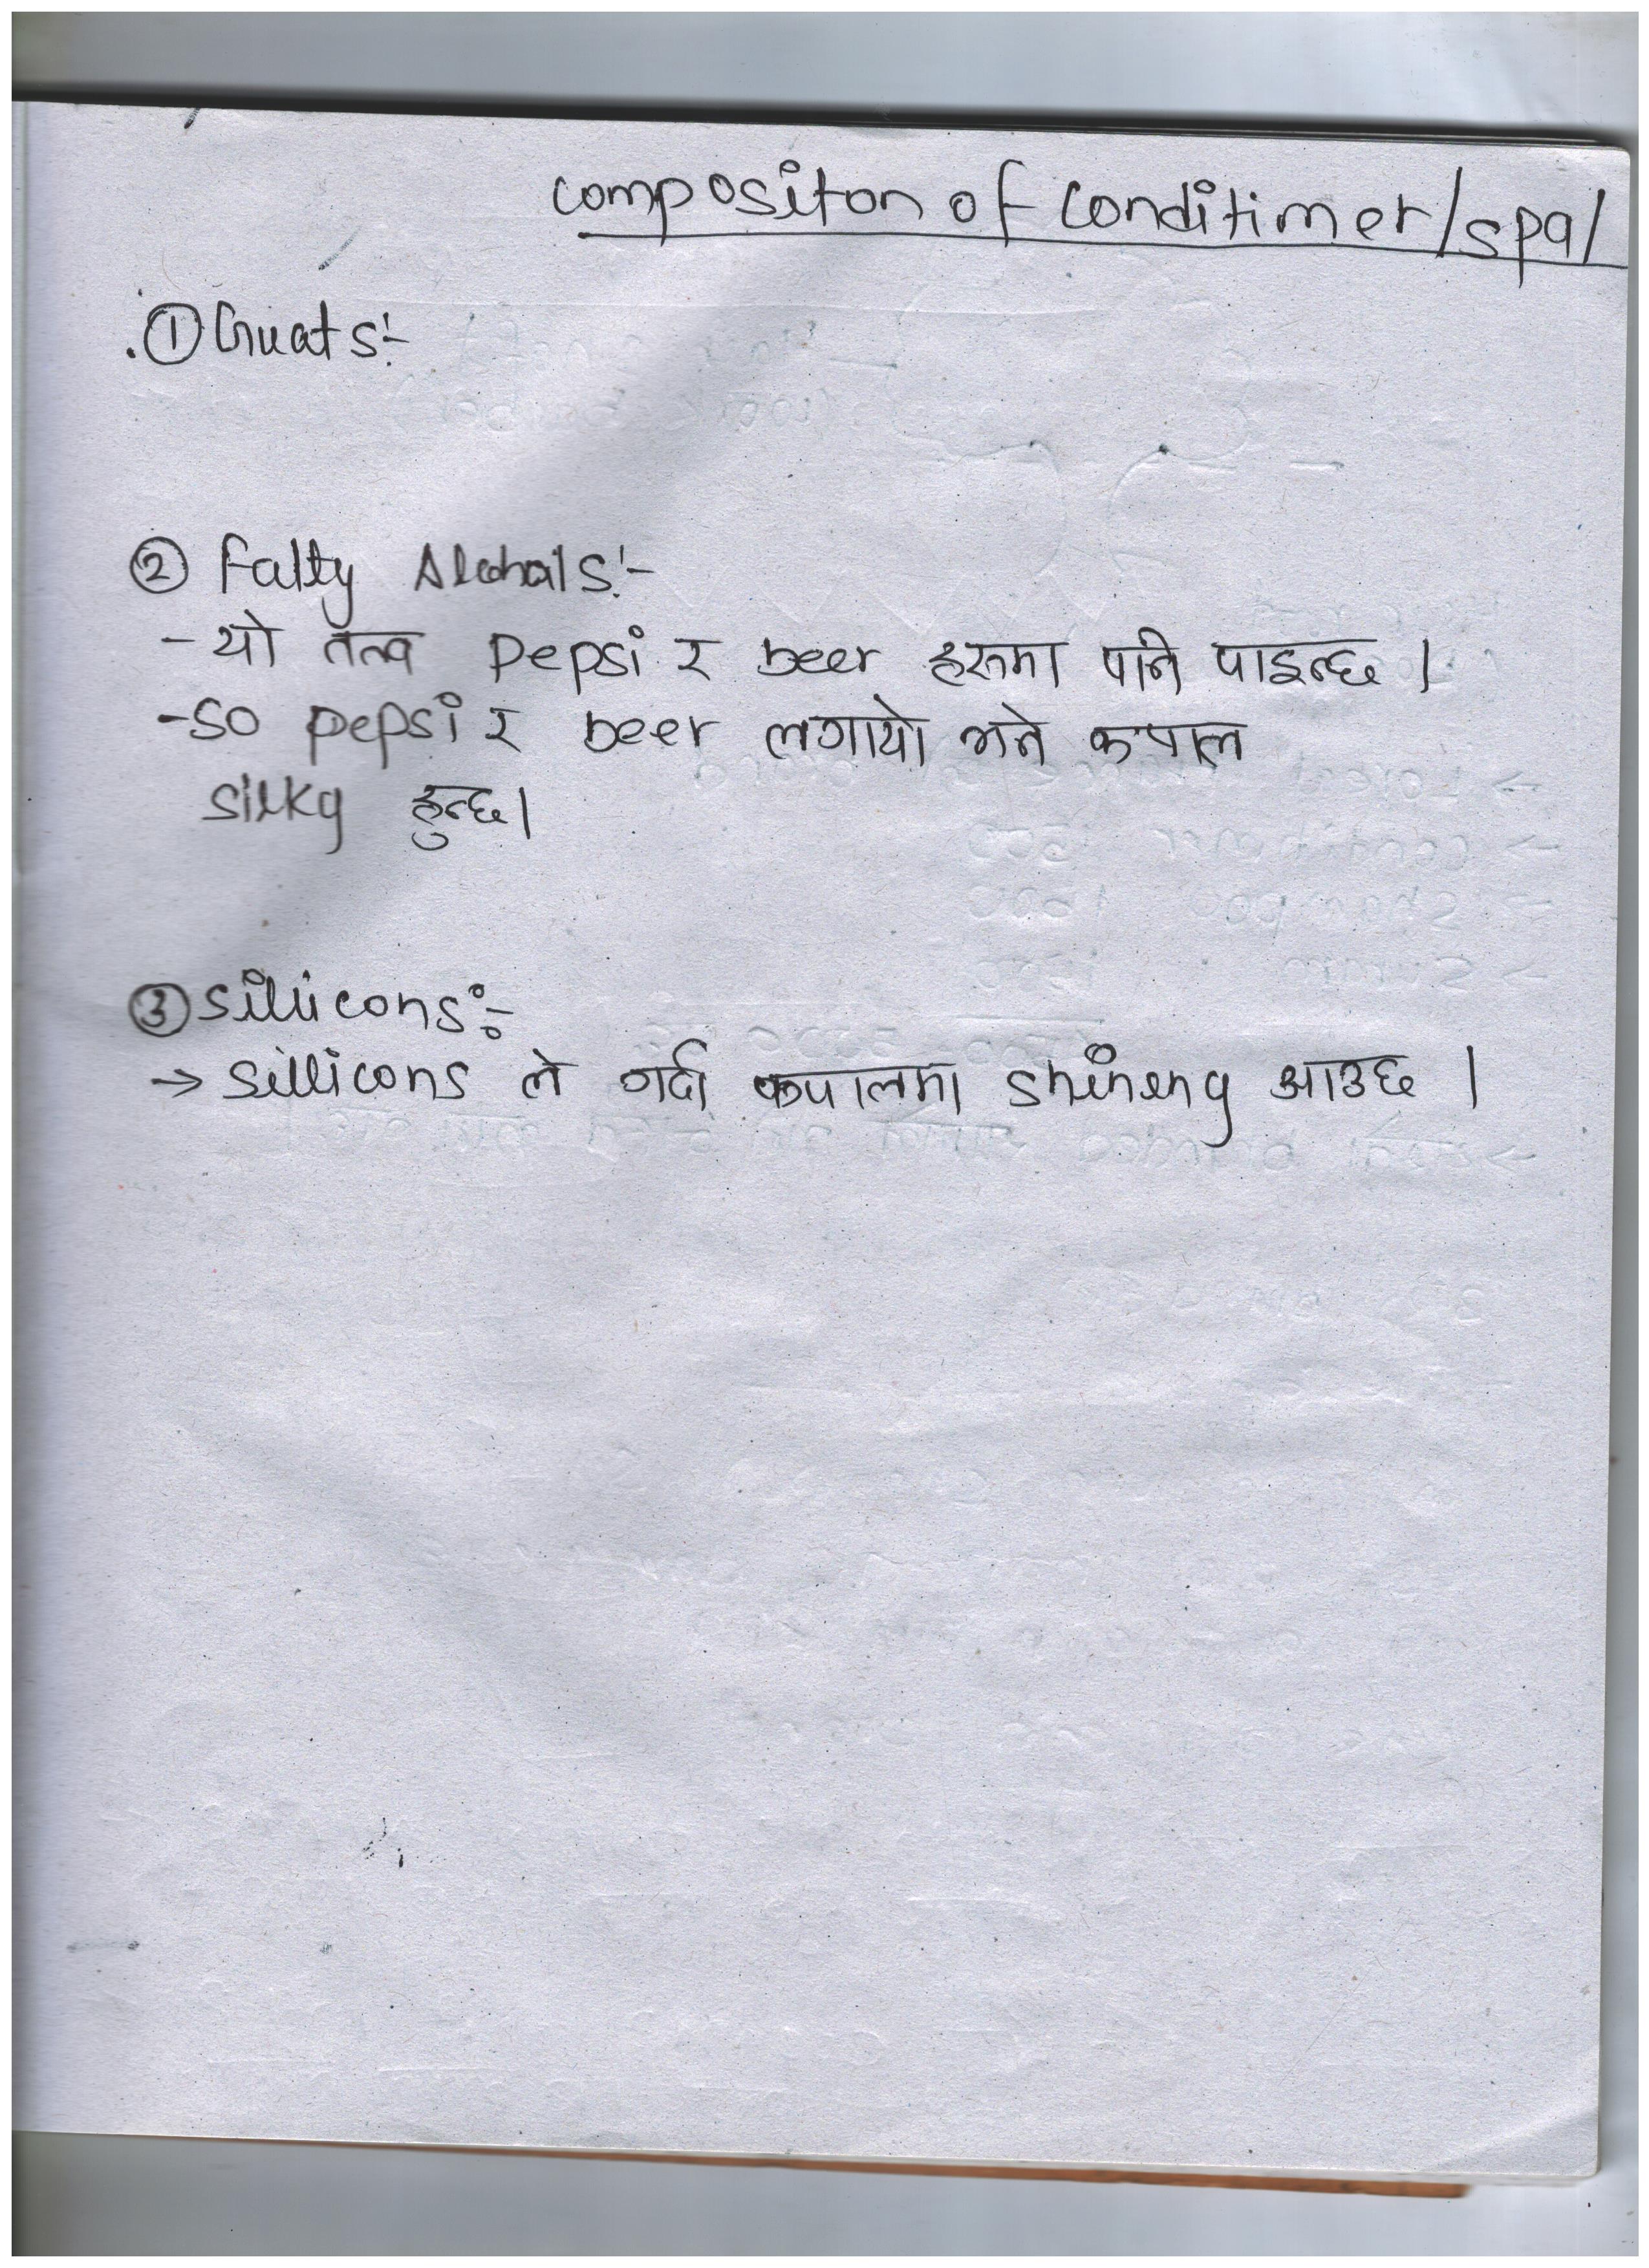 compositon of Conditimer/spa/
① Guats:-
② Fatty Alcohails:-
- यो तत्व pepsi र beer हरुमा पनि पाइन्छ ।
- so pepsi र beer लगायो भने कपाल
silky हुन्छ।
③ sillicons:-
→ sillicons ले गर्दा कपालमा shining आउछ ।